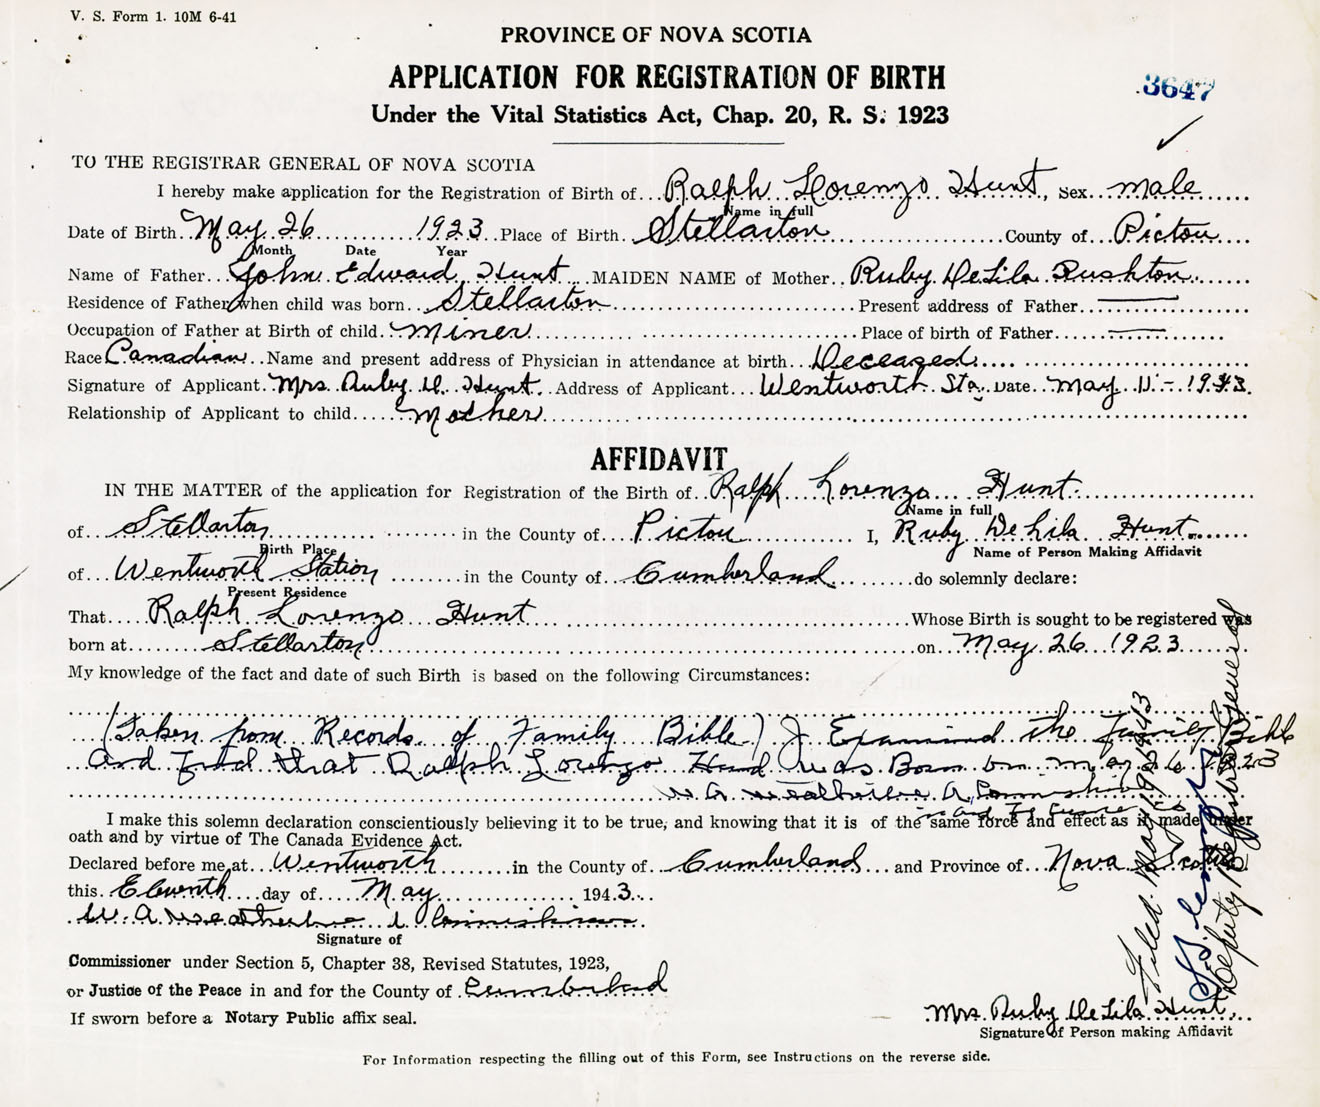 V. S. Form 1. 10M 6-41
PROVINCE OF NOVA SCOTIA
APPLICATION FOR REGISTRATION OF BIRTH
3647
Under the Vital Statistics Act, Chap. 20, R. S. 1923
TO THE REGISTRAR GENERAL OF NOVA SCOTIA
I hereby make application for the Registration of Birth of Ralph Lorenzo Hunt, Sex male
Name in full
Date of Birth May 26 1923 Place of Birth Stellarton County of Pictou
Month Date Year
Name of Father John Edward Hunt MAIDEN NAME of Mother Ruby DeLila Rushton
Residence of Father when child was born Stellarton Present address of Father
Occupation of Father at Birth of child Miner Place of birth of Father
Race Canadian Name and present address of Physician in attendance at birth Deceased
Signature of Applicant Mrs. Ruby D. Hunt Address of Applicant Wentworth Sta. Date May 11 - 1943.
Relationship of Applicant to child Mother
AFFIDAVIT
IN THE MATTER of the application for Registration of the Birth of Ralph Lorenzo Hunt
Name in full
of Stellarton in the County of Pictou I, Ruby DeLila Hunt
Birth Place Name of Person Making Affidavit
of Wentworth Station in the County of Cumberland do solemnly declare:
Present Residence
That Ralph Lorenzo Hunt Whose Birth is sought to be registered was
born at Stellarton on May 26 1923
My knowledge of the fact and date of such Birth is based on the following Circumstances:
(Taken from Records of Family Bible) I Examined the Family Bible
and find that Ralph Lorenzo was Born on May 26 1923
W. A.
I make this solemn declaration conscientiously believing it to be true, and knowing that it is of the same force and effect as if made under
oath and by virtue of The Canada Evidence Act.
Declared before me at Wentworth in the County of Cumberland and Province of Nova Scotia
this Eleventh day of May 1943
W. A.
Signature of
Commissioner under Section 5, Chapter 38, Revised Statutes, 1923,
or Justice of the Peace in and for the County of Cumberland
If sworn before a Notary Public affix seal.
Mrs. Ruby DeLila Hunt
Signature of Person making Affidavit
For Information respecting the filling out of this Form, see Instructions on the reverse side.
Filed May 1943
Deputy Registrar General